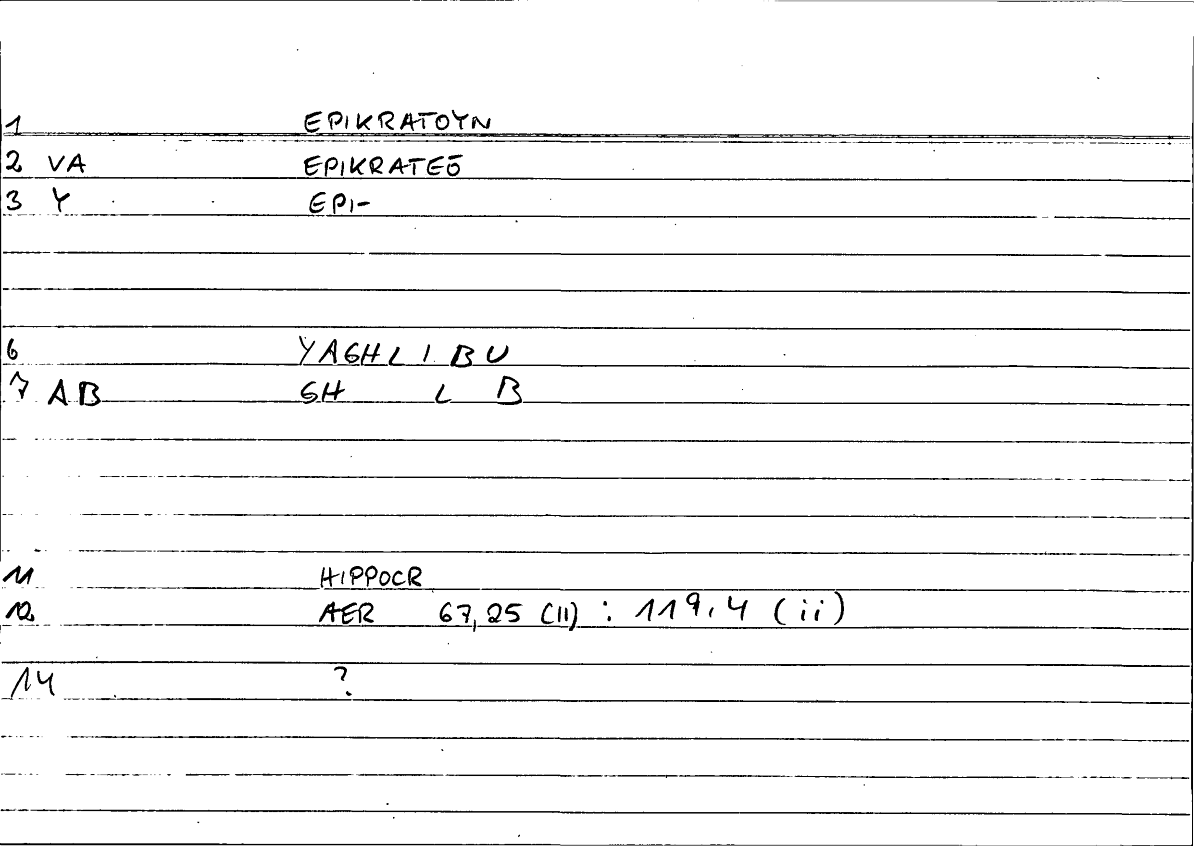 1 EPIKRATOYN
2 VA EPIKRATEŌ
3 Y EPI-
6 YAGHLIBU
7 AB GH L B
11 HIPPOCR
12 AER 67,25 (11) : 119,4 (ii)
14 ?